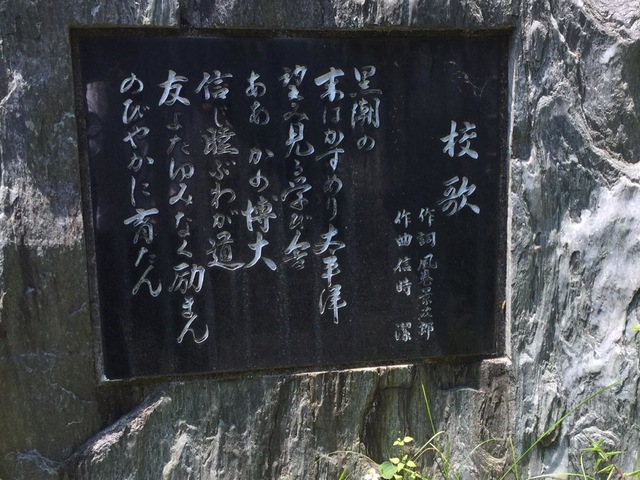 校歌
作詞 風巻景次郎
作曲 信時 潔
黒潮の
末はかすめり太平洋
望み見る学び舎
ああ かの博大
信じ睦ぶわが道
友よたゆみなく励まん
のびやかに育たん